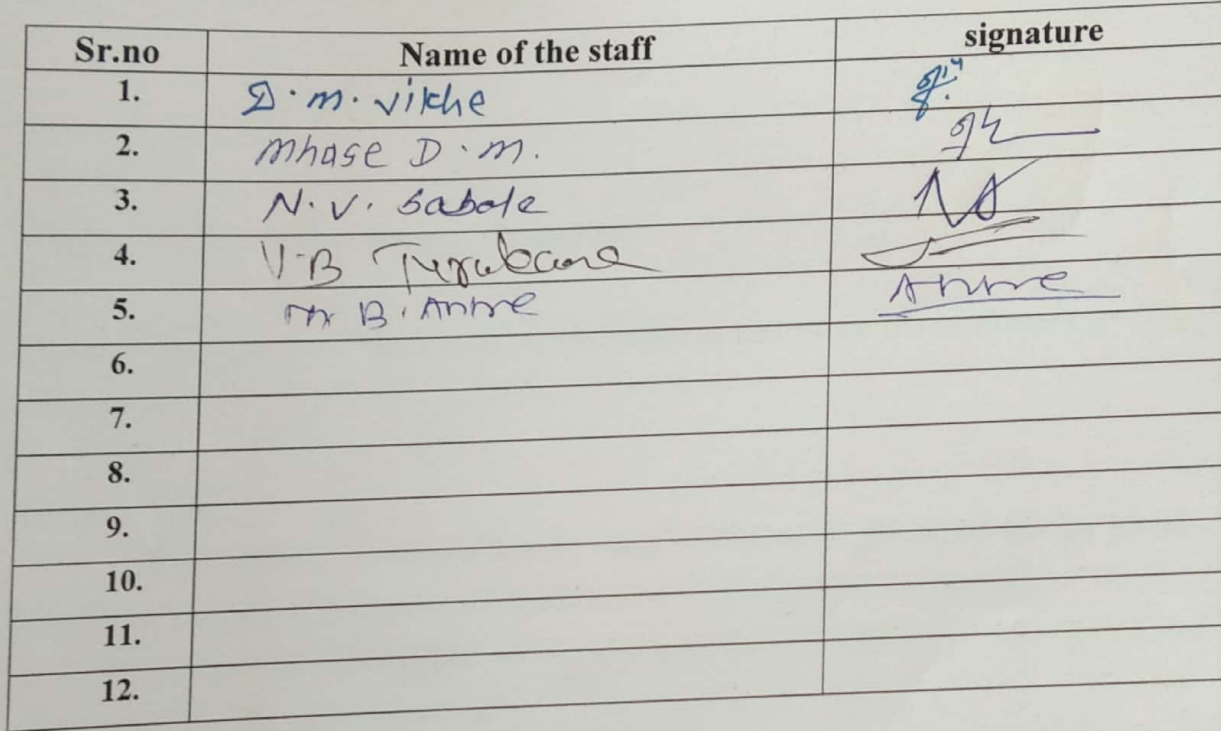 Sr.no Name of the staff signature
1. D.m. vikhe
2. mhase D.m.
3. N.V. Sabale
4. V.B
5. m B. Anme Anme
6.
7.
8.
9.
10.
11.
12.